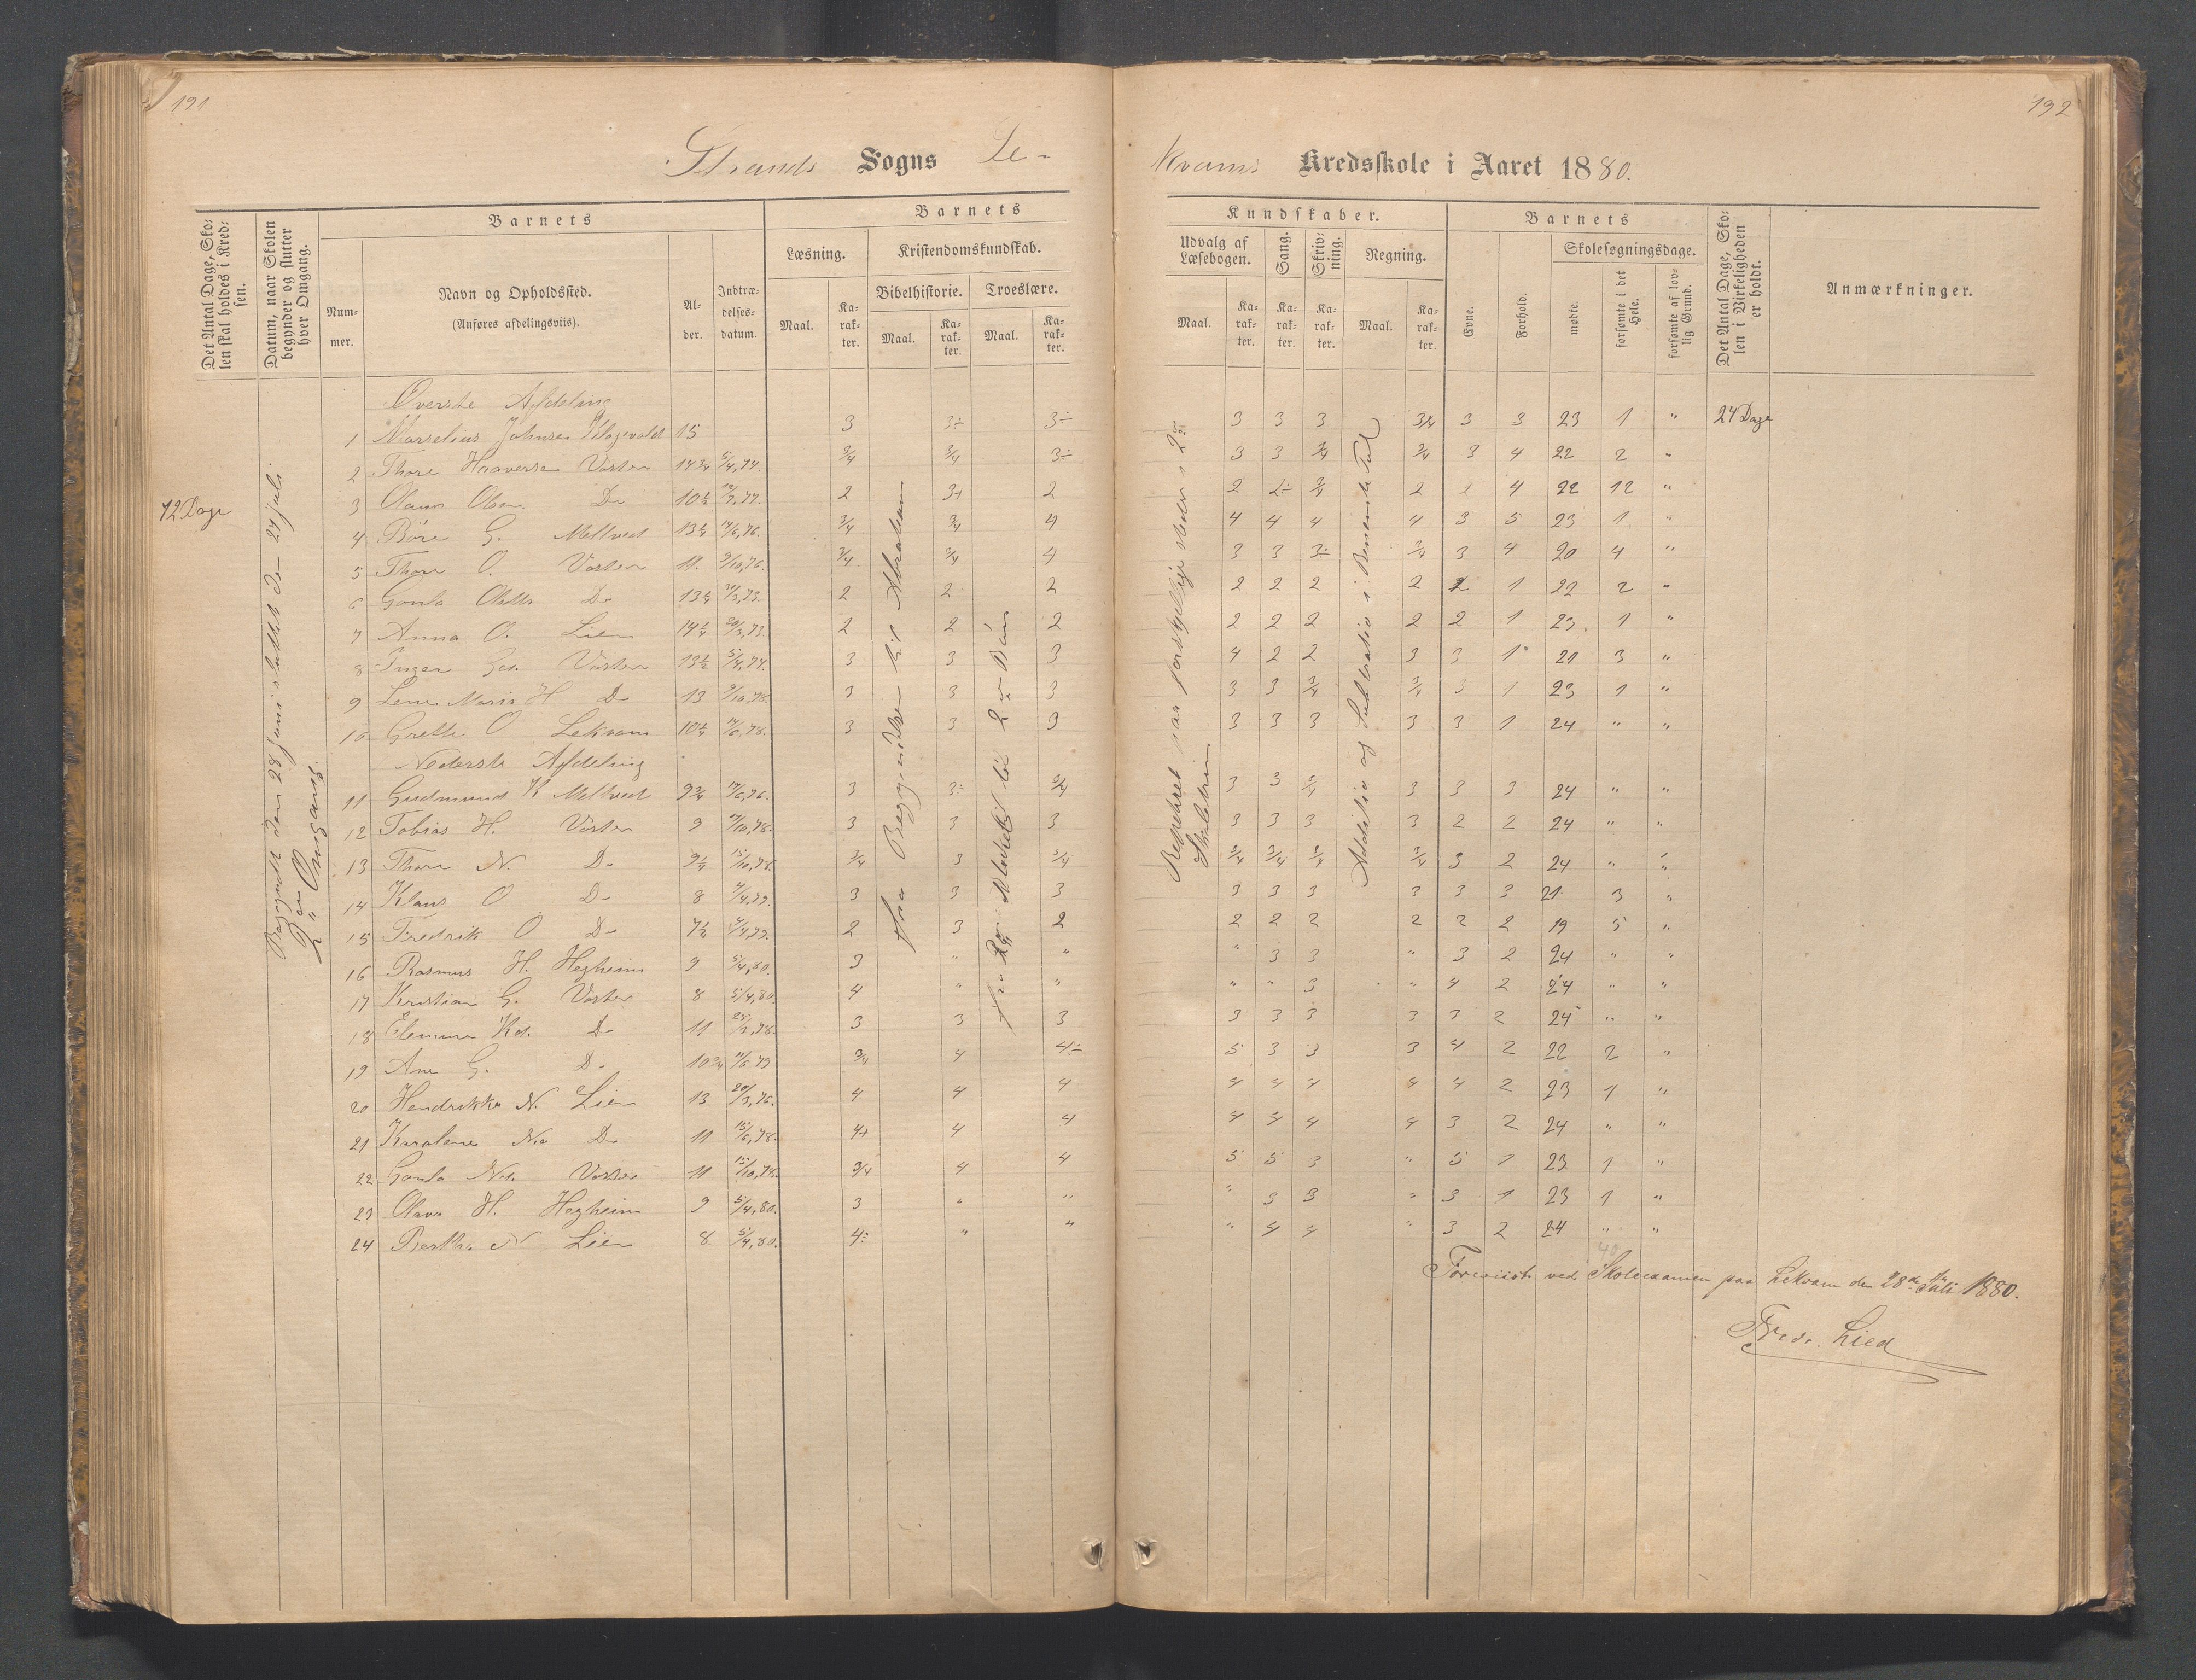 191.
192
Strands Sogns Le-
kvams Kredsskole i Aaret 1880.
Det Antal Dage, Skolen skal holdes i Kredsen.
Datum, naar Skolen begynder og slutter hver Omgang.
Barnets
Nummer.
Navn og Opholdssted.
(Anføres afdelingsviis).
Alder.
Indtrædelsesdatum.
Barnets
Læsning.
Maal.
Karakter.
Kristendomskundskab.
Bibelhistorie.
Maal.
Karakter.
Troeslære.
Maal.
Karakter.
Kundskaber.
Udvalg af Læsebogen.
Maal.
Karakter.
Sang.
Karakter.
Skrivning.
Karakter.
Regning.
Maal.
Karakter.
Barnets
Evne.
Forhold.
Skolesøgningsdage.
mødte.
forsømte i det Hele.
forsømte af lovlig Grund.
Det Antal Dage, Skolen i Virkeligheden er holdt.
Anmærkninger.
72 Dage
Begyndt den 28 Juni sluttet den 24 Juli
2en Omgang.
Fra Begyndelsen til Abraham
Addition og Subtration i Benævnte Tal
Øverste Afdeling
1 Marselius Johnsen 15 3 3÷ 3÷ 3 3 3 3/4 3 3 23 1 " 24 Dage
2 Thore Haaversen Vosten 14 3/4 5/4,74. 3/4 3/4 3÷ 3 3 3/4 3/4 3 4 22 2 "
3 Olaus Olsen Do 10 1/2 2 3+ 2 2 2÷ 3/4 2 2 4 22 12 "
4 Børe G. Meltveit 13 3/4 3/4 4 4 4 4 4 3 5 23 1 "
5 Thore O. Vosten 11. 9/10,76. 3/4 3/4 4 3 3 3÷ 3/4 3 4 20 4 "
6 Gonla Do 2 2 2 2 2 2 2 2 1 22 2 "
7 Anna O. Lien 2 2 2 2 2 2 2 2 1 23. 1 "
8 Inger Vosten 13 1/2 5/4,74. 3 3 3 4 2 2 3 3 1 21 3 "
9 Lene Maria H Do 13 3 3 3 3 3 3/4 3/4 3 1 23 1 "
10 Grethe O Lekvam 3 3 3 3 3 3 3 3 1 24 " "
Nederste Afdeling
11 Gudmund K Meltveit 9 3/4 3 3÷ 3/4 3 3 3/4 3 3 3 24 " "
12 Tobias H. Vosten 9 3 3 3 3 3 3 3 2 2 24 " "
13 Thore N. Do 3/4 3 3/4 3/4 3/4 3/4 3/4 3 2 24 " "
14 Klaus O Do 8 3 3 3 3 3 3 3 3 3 21. 3 "
15 Fredrik O Do 7 1/2 2 3 2 2 2 2 2 2 2 19 5 "
16 Rasmus H. Hegheim 9 5/4,80. 3 " " " 3 3 " 3 2 24 " "
17 Kristian G. Vosten 8 5/4,80. 4 " " " " 3 " 4 2 24 " "
18 Do 11 3 3 3 3 3 3 3 3 2 24 " "
19 Ane G. Do 10 3/4 3/4 4 4÷ 5 3 3 3 4 2 22 2 "
20 Hendrikke N. Lien 13 20/3,76. 4 4 4 4 4 4 4 4 2 23 1 "
21 Karalene Do 11 15/6,78. 4+ 4 4 4 4 4 4 3 2 24 " "
22 Gonla Vosten 11 15/10,78. 3/4 4 4 5 5 3 " 5 1 23 1 "
23 Olava H. Hegheim 9 5/4,80. 3 " " " 3 3 " 3 1 23 1 "
24 Bertha N Lien 8 5/4,80. 4÷ " " " 4 4 " 3 2 24 " "
40
Foreviist ved Skoleexamen paa Lekvam den 28de Juli 1880.
Fredr. Lied